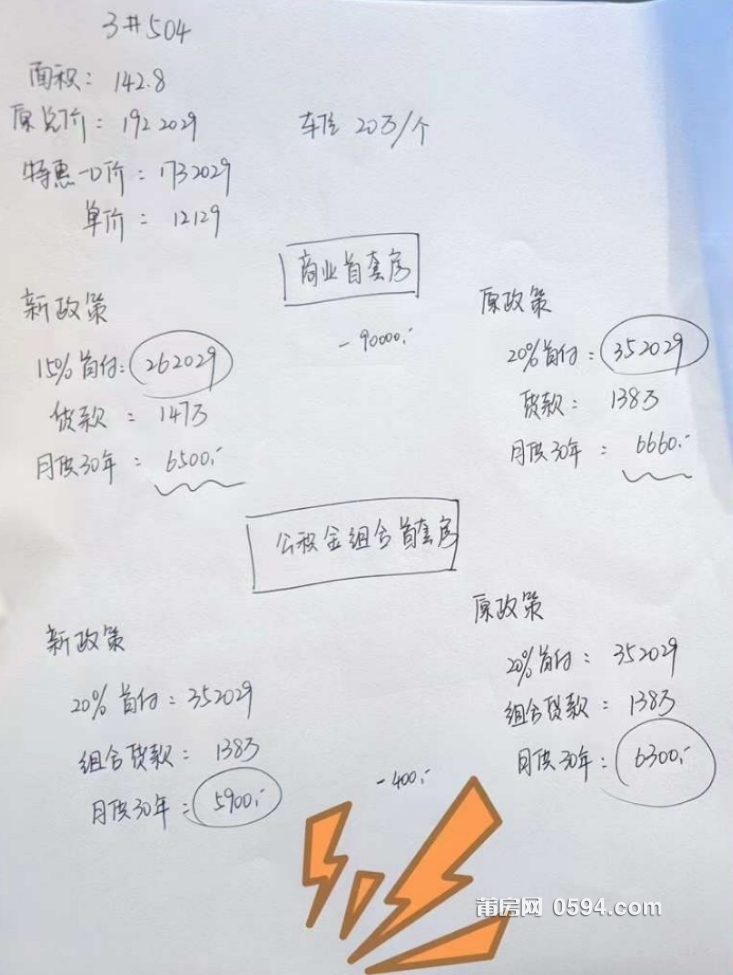 3#504
面积：142.8
原总价：1922029
车位 20万/个
特惠一口价：1732029
单价：12129
商业首套房
新政策
15%首付：262029
贷款：147万
月供30年：6500.-
-90000.-
原政策
20%首付：352029
贷款：138万
月供30年：6660.-
公积金组合首套房
新政策
20%首付：352029
组合贷款：138万
月供30年：5900.-
-400.-
原政策
20%首付：352029
组合贷款：138万
月供30年：6300.-
莆房网 0594.com